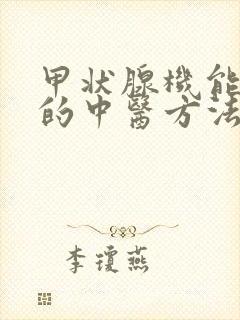 甲状腺機能
的中醫方法
李瓊燕